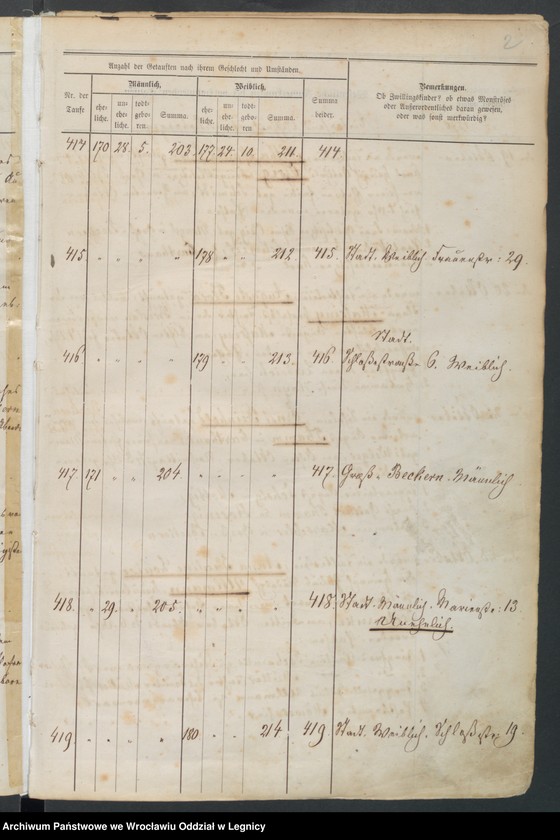 2
Anzahl der Getauften nach ihrem Geschlecht und Umständen.
Nr. der Taufe
Männlich.
Weiblich.
Summa beider.
Bemerkungen.
Ob Zwillingskinder? ob etwas Monströses
oder Außerordentliches daran gewesen,
oder was sonst merkwürdig?
ehe-liche. un-ehe-liche. todt-gebo-ren. Summa. ehe-liche. un-ehe-liche. todt-gebo-ren. Summa.
414 170 28. 5. 203. 177. 24. 10. 211. 414
415. " " " " 178 " " 212. 415. Stadt. Weiblich Frauenstr: 29.
Stadt.
416 " " " " 179 " " 213. 416 Schloßstraße 6. Weiblich.
417 171 " " 204. " " " " 417. Groß-Beckern. Männlich
418. " 29. " 205. " " " " 418. Stadt. Männlich. Marienstr: 13.
Unehelich.
419. " " " " 180 " " 214. 419. Stadt. Weiblich. Schloßstr 19.
Archiwum Państwowe we Wrocławiu Oddział w Legnicy